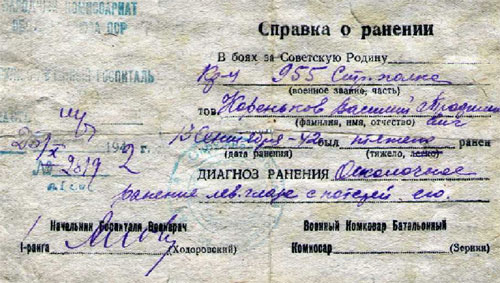 НАРОДНЫЙ КОМИССАРИАТ
ОБОРОНЫ СОЮЗА ССР
ГОСПИТАЛЬ
194 2 г.
№ 2019
Справка о ранении
В боях за Советскую Родину
Кр-ц 955 Стр. полка
(военное звание, часть)
тов. Кореньков Василий
вич
(фамилия, имя, отчество)
13 Сентября - 42 был тяжело ранен
(дата ранения) (тяжело, легко)
ДИАГНОЗ РАНЕНИЯ Осколочное
ранение лев. глаза с потерей его.
Начальник Госпиталя Военврач
I-ранга (Ходоровский)
Военный Комиссар Батальонный
Комиссар (Зернин)